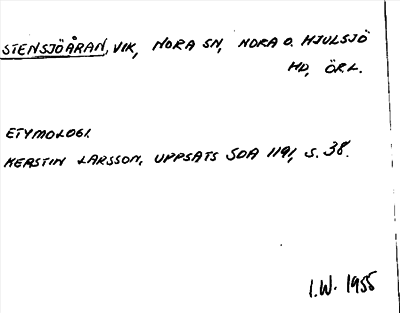 STENSJÖÅRAN, VIK, NORA SN, NORA O. HJULSJÖ
HD, ÖRL.
ETYMOLOGI.
KERSTIN LARSSON, UPPSATS SOA 1191, S. 38.
I.W. 1955